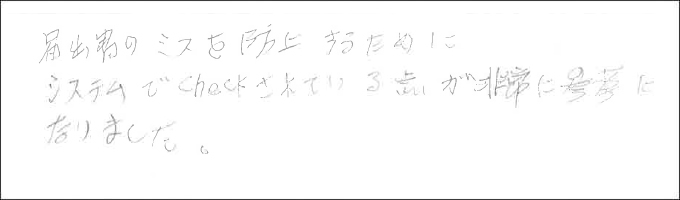 届出書のミスを防止するために
システムでcheckされている点が非常に参考に
なりました。